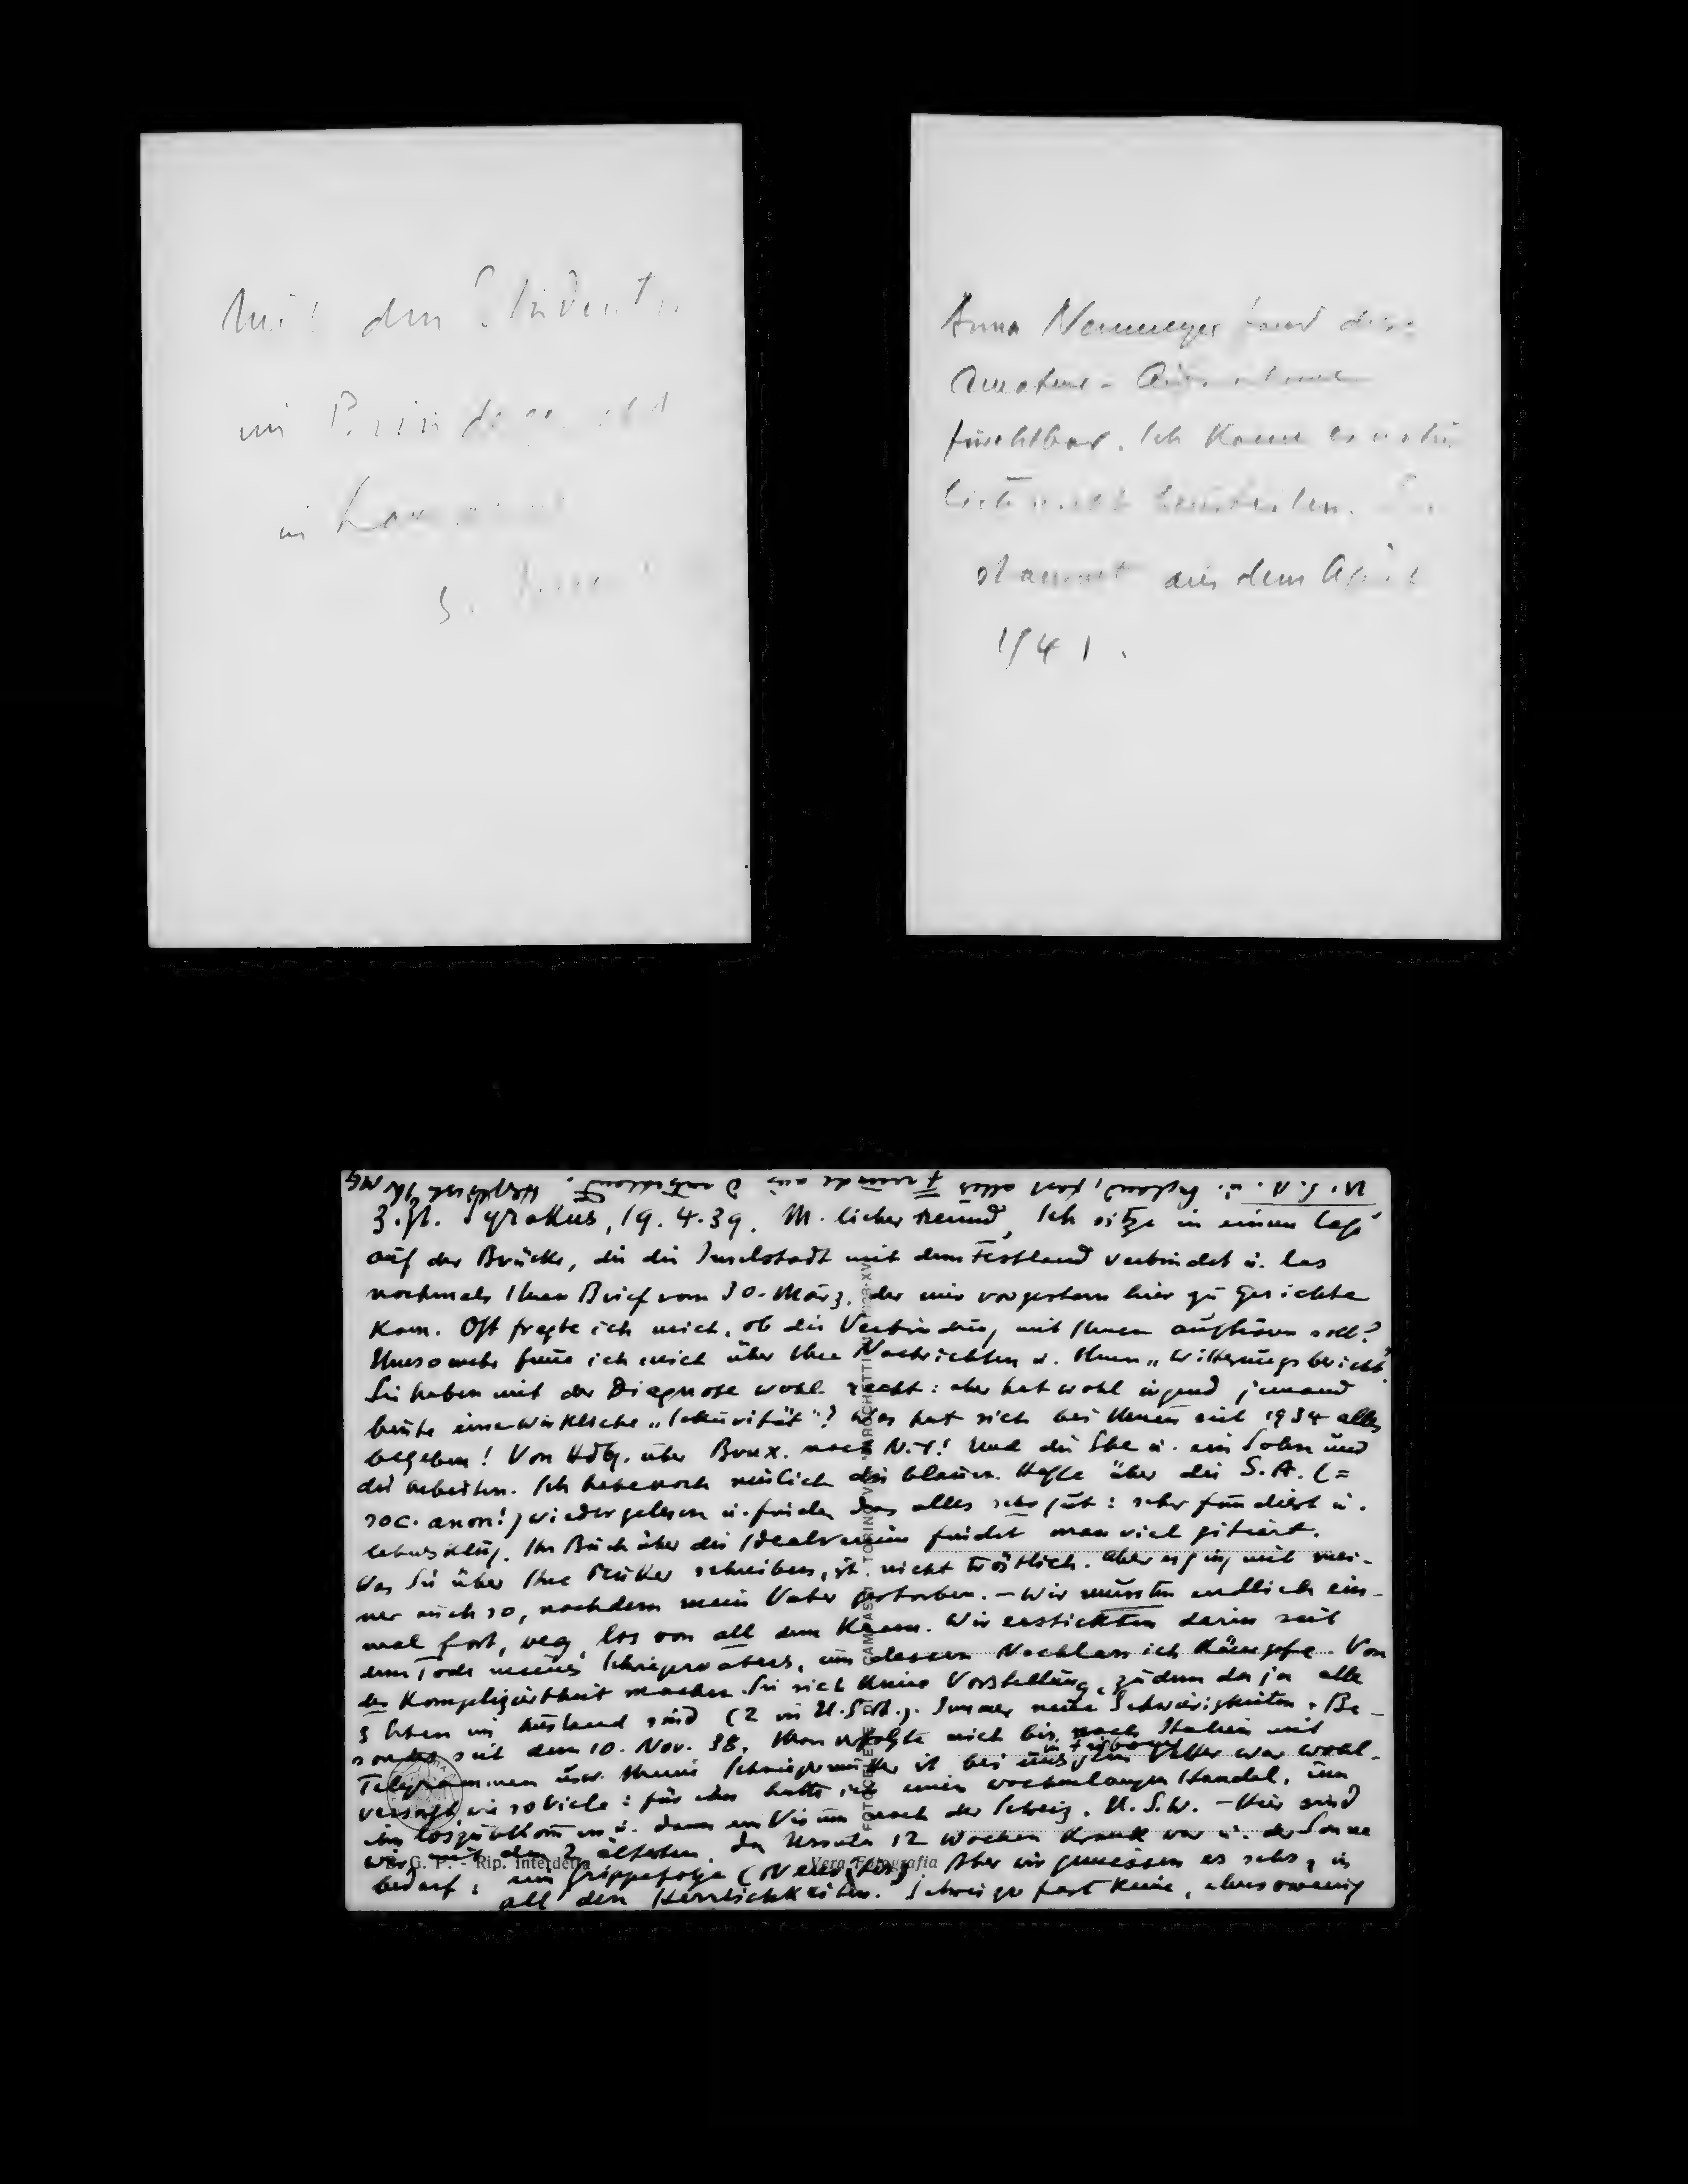 Mit den Studenten
im
in
Anna Neumeyer fand diese
Amateur-Aufnahme
furchtbar. Ich kann es natür
lich nicht beurteilen. Sie
stammt aus dem April
1941.
U.S.A. u. England, fast alles Freunde aus Deutschland. Herzlichst Ihr
z. Zt. Syrakus, 19.4.39. M. lieber Freund, Ich sitze in einem Café
auf der Brücke, die die Inselstadt mit dem Festland verbindet u. las
nochmals Ihren Brief vom 30. März, der mir vorgestern hier zu Gesichte
kam. Oft fragte ich mich, ob die Verbindung mit Ihnen aufhören soll?
Umsomehr freue ich mich über Ihre Nachrichten u. Ihren „Witterungsbericht".
Sie haben mit der Diagnose wohl recht: aber hat wohl irgend jemand
heute eine wirkliche „Sekurität"? Was hat sich bei Ihnen seit 1934 alles
begeben! Von Hdbg. über Brux. nach N.Y.! Und die Ehe u. ein Sohn und
die Arbeiten. Ich habe noch neulich die blauen Hefte über die S.A. (=
soc. anon!) wieder gelesen u. finde das alles sehr gut: sehr fundiert u.
lebensklug. Ihr Buch über die Idealvereine findet man viel zitiert.
Was Sie über Ihre Mutter schreiben, ist nicht tröstlich. Aber es ging mit mei-
ner auch so, nachdem mein Vater gestorben. – Wir mussten endlich ein-
mal fort, weg, los von all dem Kram. Wir erstickten darin seit
dem Tode meines Schwiegervaters, um dessen Nachlass ich kämpfe. Von
der Kompliziertheit machen Sie sich keine Vorstellung, zudem da ja alle
3 Erben im Ausland sind (2 in U.S.A.). Immer neue Schwierigkeiten. Be-
sonders seit dem 10. Nov. 38. Man verfolgte mich bis nach Italien mit
Telegrammen usw. Meine Schwiegermutter ist bei uns in Freiburg, ein Vetter war wohl-
versorgt wie so viele: für den hatte ich einen wochenlangen Handel, um
ihn loszubekommen u. dann ein Visum nach der Schweiz. U.S.W. – Hier sind
wir mit den 2 ältesten, da Ursula 12 Wochen krank war u. der Sonne
bedarf, eine Grippefolge (Neuritis). Aber wir geniessen es sehr, in
all den Herrlichkeiten. Schweizer fast keine, ebensowenig
FOTOCELERE CAMPASSI TORINO
E. G. P. - Rip. interdetta
Vera Fotografia